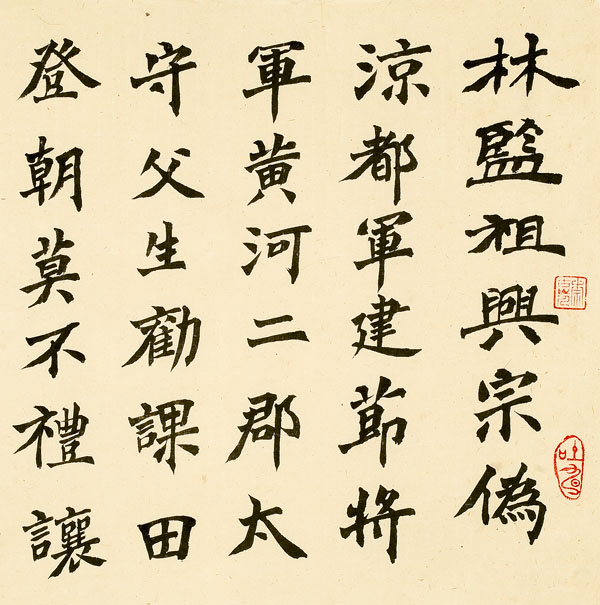 林監祖興宗偽
涼都軍建節將
軍黃河二郡太
守父生勸課田
登朝莫不禮讓